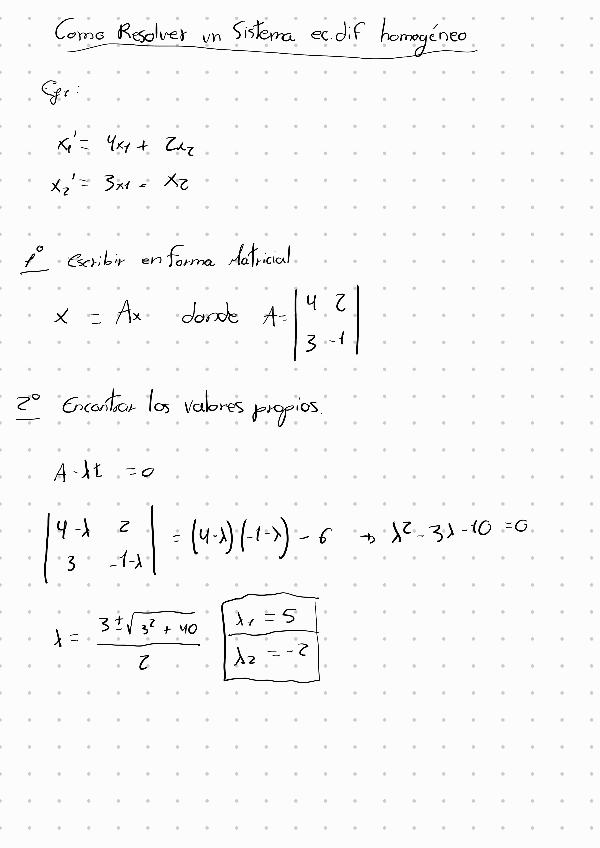 Como Resolver un Sistema ec.dif homogéneo
Eje:
x₁' = 4x₁ + 2x₂
x₂' = 3x₁ - x₂
1º escribir en forma Matricial
x = Ax donde A = |4 2|
|3 -1|
2º Encontrar los valores propios.
A - λt = 0
|4-λ 2| = (4-λ)(-1-λ) - 6 → λ² - 3λ - 10 = 0
|3 -1-λ|
λ = (3 ± √(3² + 40)) / 2
λ₁ = 5
λ₂ = -2